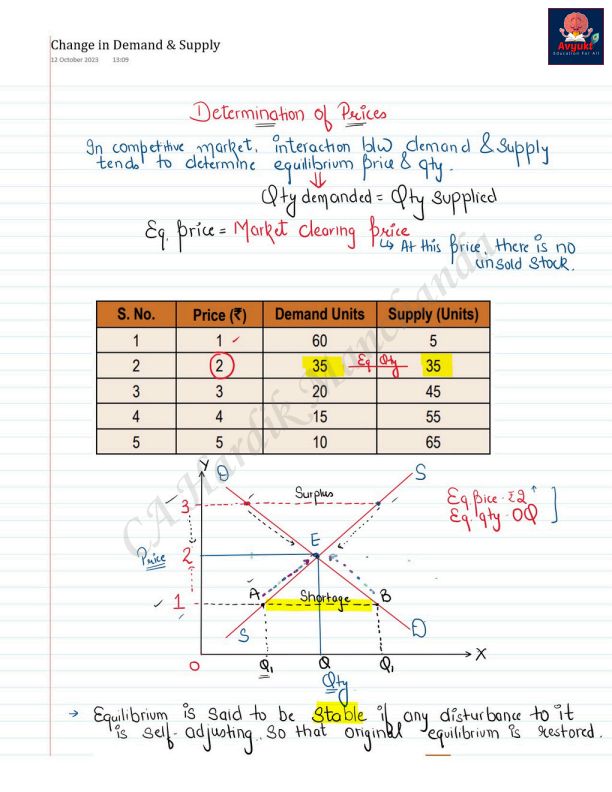 Avyukt
Education For All
Change in Demand & Supply
12 October 2023 13:09
Determination of Prices
In competitive market, interaction b/w demand & Supply
tends to determine equilibrium price & qty.
Qty demanded = Qty supplied
Eq. price = Market clearing price
↳ At this price, there is no
unsold stock.
S. No. Price (₹) Demand Units Supply (Units)
1 1 60 5
2 2 35 Eq Qty 35
3 3 20 45
4 4 15 55
5 5 10 65
CA Hardik Manchanda
Y D S
3 Surplus
Eq price - ₹2
Eq. qty - OQ
E
Price 2
A Shortage B
1
S D
O Q₁ Q Q₁ X
Qty
→ Equilibrium is said to be stable if any disturbance to it
is self-adjusting. So that original equilibrium is restored.